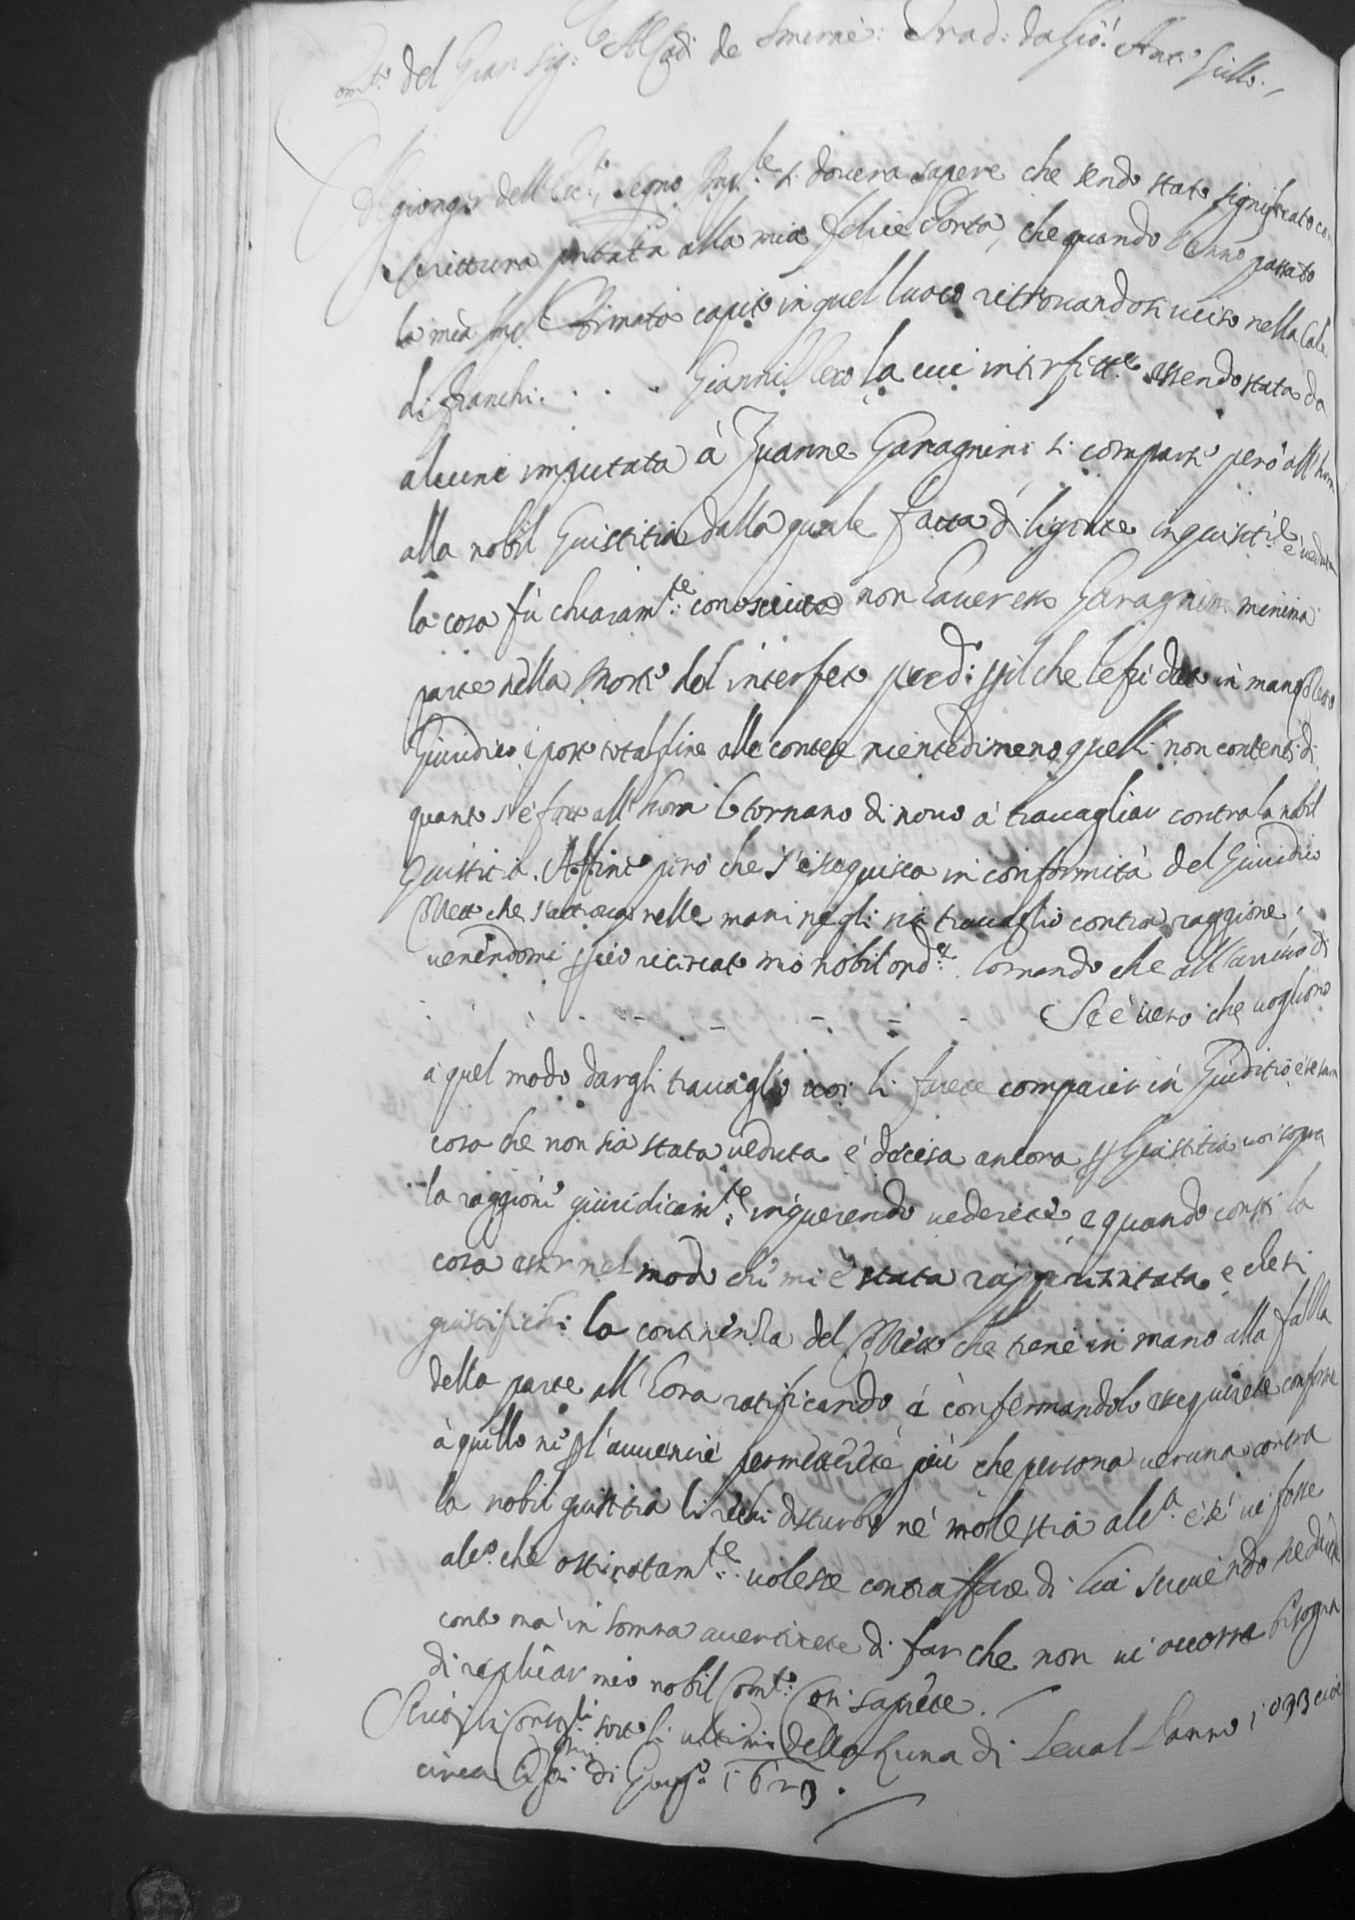 Comt.º del Gran Sig: Al Cadi de Smirne: Trad: da Gio: Ant.º Grillo
Al gionger dell'Ecc: Segno Imp.le si doverà sapere che sendo stato significato con
scrittura portata alla mia felice Porta, che quando l'anno passato
la mia Imp.l Armata capitò in quel luoco ritrovandosi ucciso nella Cale
di Franchi . . . . Gianni la cui interfett.e essendo stata da
alcuni imputata à Zuanne Garagnini si comparse però all'hora
alla nobil Giustitia dalla quale fatta diligente inquisit.e e veduta
la cosa fù chiaram.te conosciuto non haver esso Garagnini minima
parte nella morte del interfeto pred: p il che le fu dato in mano
Giuridico e posto total fine alle contese nientedimeno quelli non contenti di
quanto s'è fatto all'hora lo tornano di novo à travagliar contra la nobil
Giustitia. Affine però che s'eseguisca in conformità del Giuridico
che s'attrova nelle mani ne gli sia travaglio contra raggione,
venendomi p ciò ricercato mio nobil ord.e Comando che all'arrivo di
. . . . . . . . . Se è vero che vogliono
à quel modo dargli travaglio voi li farete comparer in Giuditio e se sarà
cosa che non sia stata veduta e decisa ancora p Giustitia voi sopra
la raggioni giuridicam.te inquerendo vederete e quando consti la
cosa esser nel modo che mi è stata rappresentata e che si
giustifichi la continenza del che tiene in mano alla faccia
della parte all'hora ratificando e confermandolo eseguirete conforme
à quello ne p l'avvenire permetterete più che persona veruna contra
la nobil giustitia li rechi disturbo nè molestia alc.a e se vi fosse
alc.o che ostinatam.te volesse contraffare di lui scrivendo ne darete
conto mà in somma avertirete di far che non vi occorra bisogna
di replicar mio nobil Comt.º Così saprete.
sotto li ultimi della Luna di Seval l'anno 1033 cioè
circa di 1623.